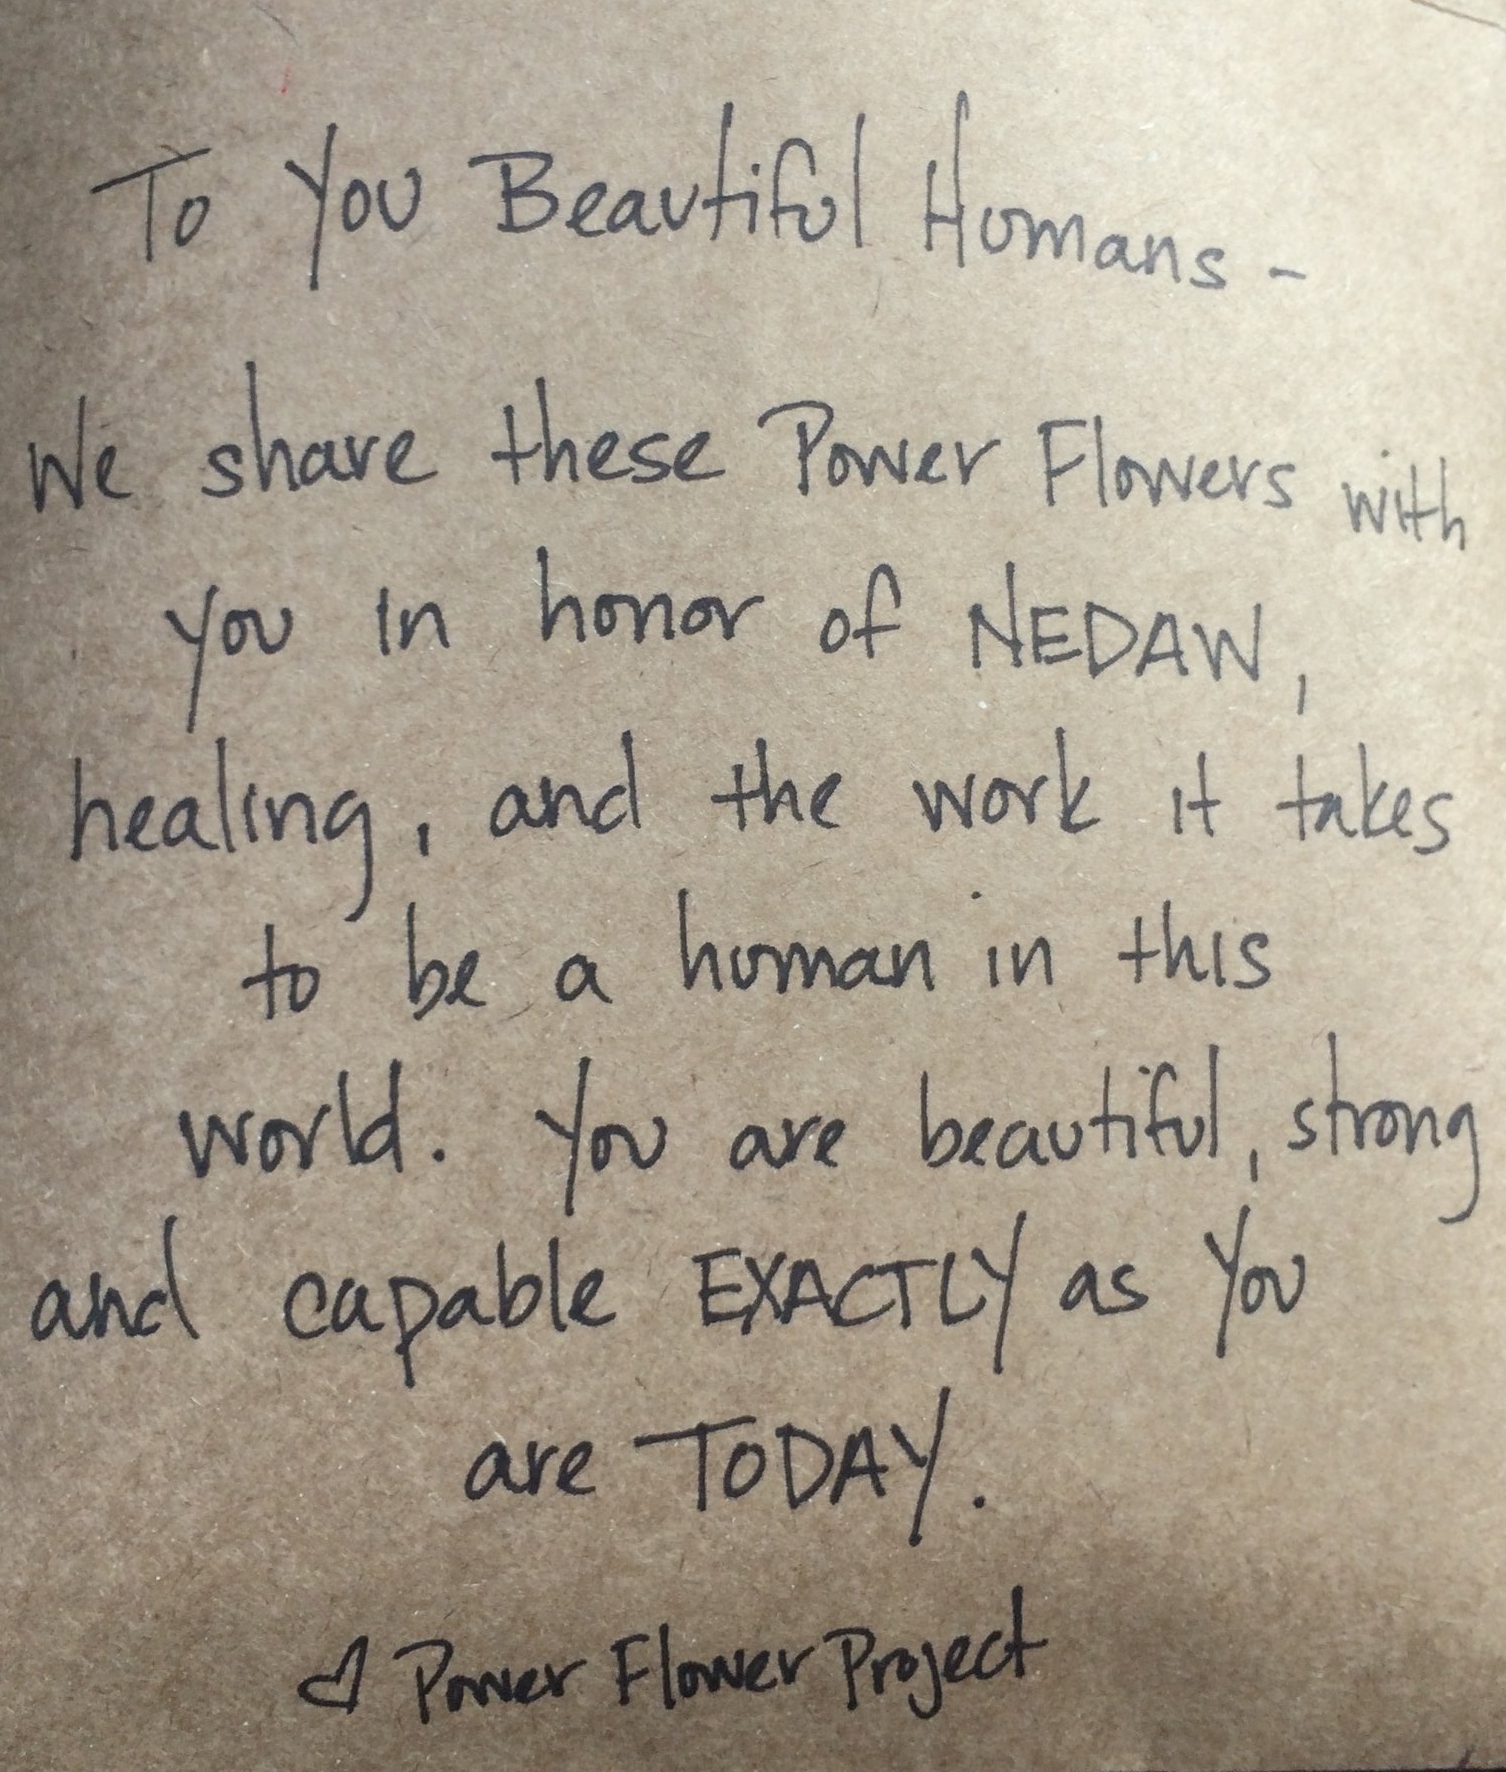 To You Beautiful Humans -
We share these Power Flowers with
you in honor of NEDAW,
healing, and the work it takes
to be a human in this
world. You are beautiful, strong
and capable EXACTLY as You
are TODAY.
♡ Power Flower Project